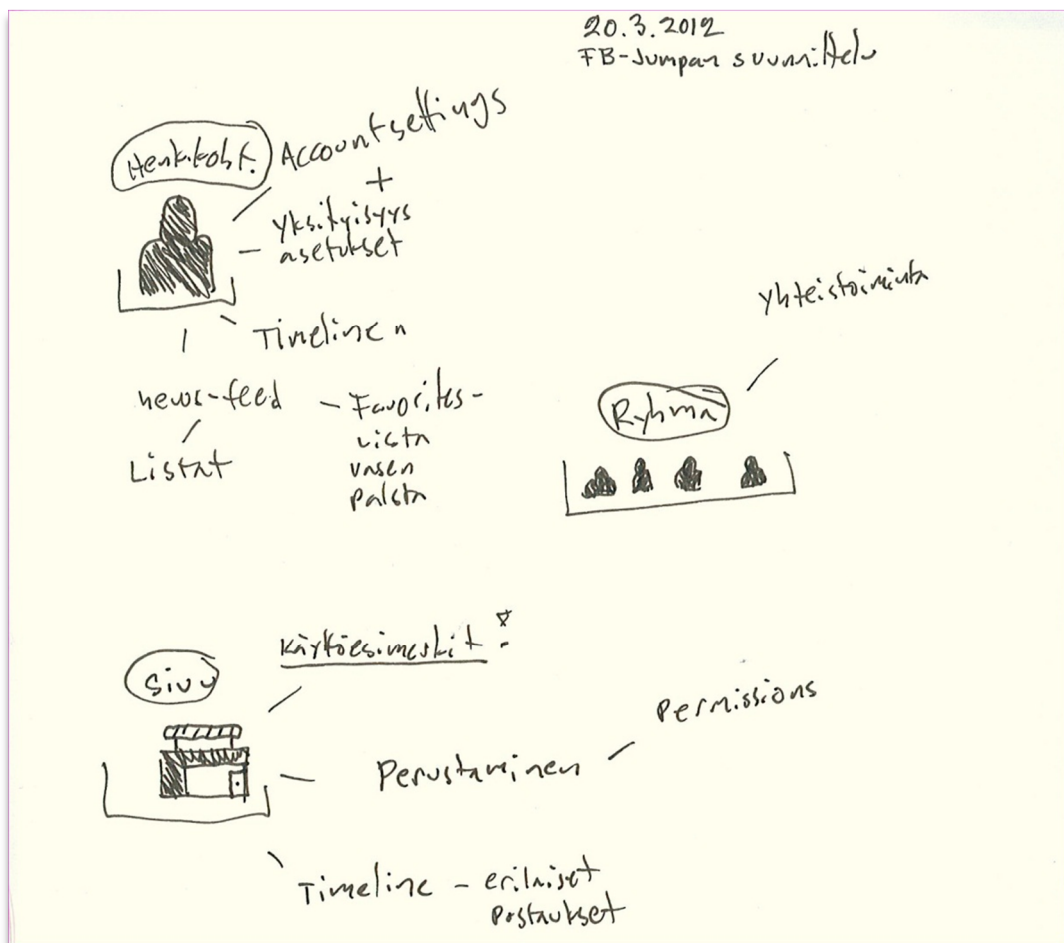 20.3.2012
FB-Jumpan suunnittelu
Henkilökoht.
Accountsettings
+
Yksityisyys
asetukset
Timeline
news-feed
Listat
- Favorites-
Lista
vasen
palsta
Yhteistoiminta
Ryhmä
Sivu
Käyttöesimerkit!
Perustaminen
Permissions
Timeline - erilaiset
Postaukset